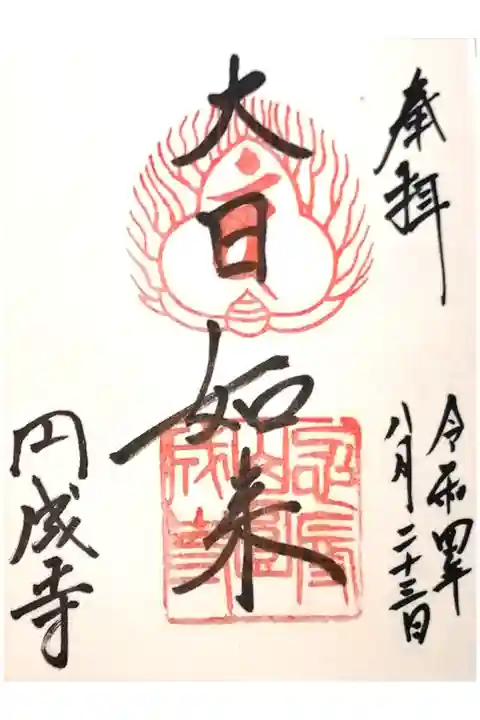 奉拝
令和四年
八月二十三日
大日如来
円成寺